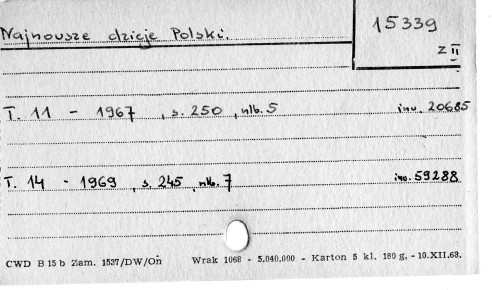 15339
Z II
Najnowsze dzieje Polski.
T. 11 - 1967 , s. 250 , nlb. 5 inw. 20685
T. 14 - 1969 , s. 245 , nlb. 7 inw. 59288
CWD B 15 b Zam. 1537/DW/Oń Wrak 1068 - 5.040.000 - Karton 5 kl. 180 g. - 10.XII.68.